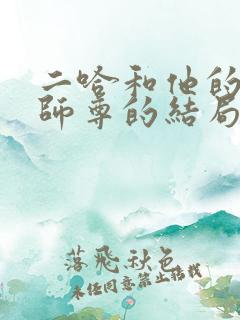 二哈和他的
師尊的結局
落飛秋色
未經同意禁止轉載